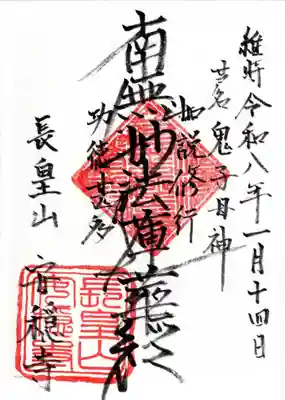 維時令和八年一月十四日
其名鬼子母神
如説修行
南無妙法蓮華経
功徳甚多
長皇山 安穏寺